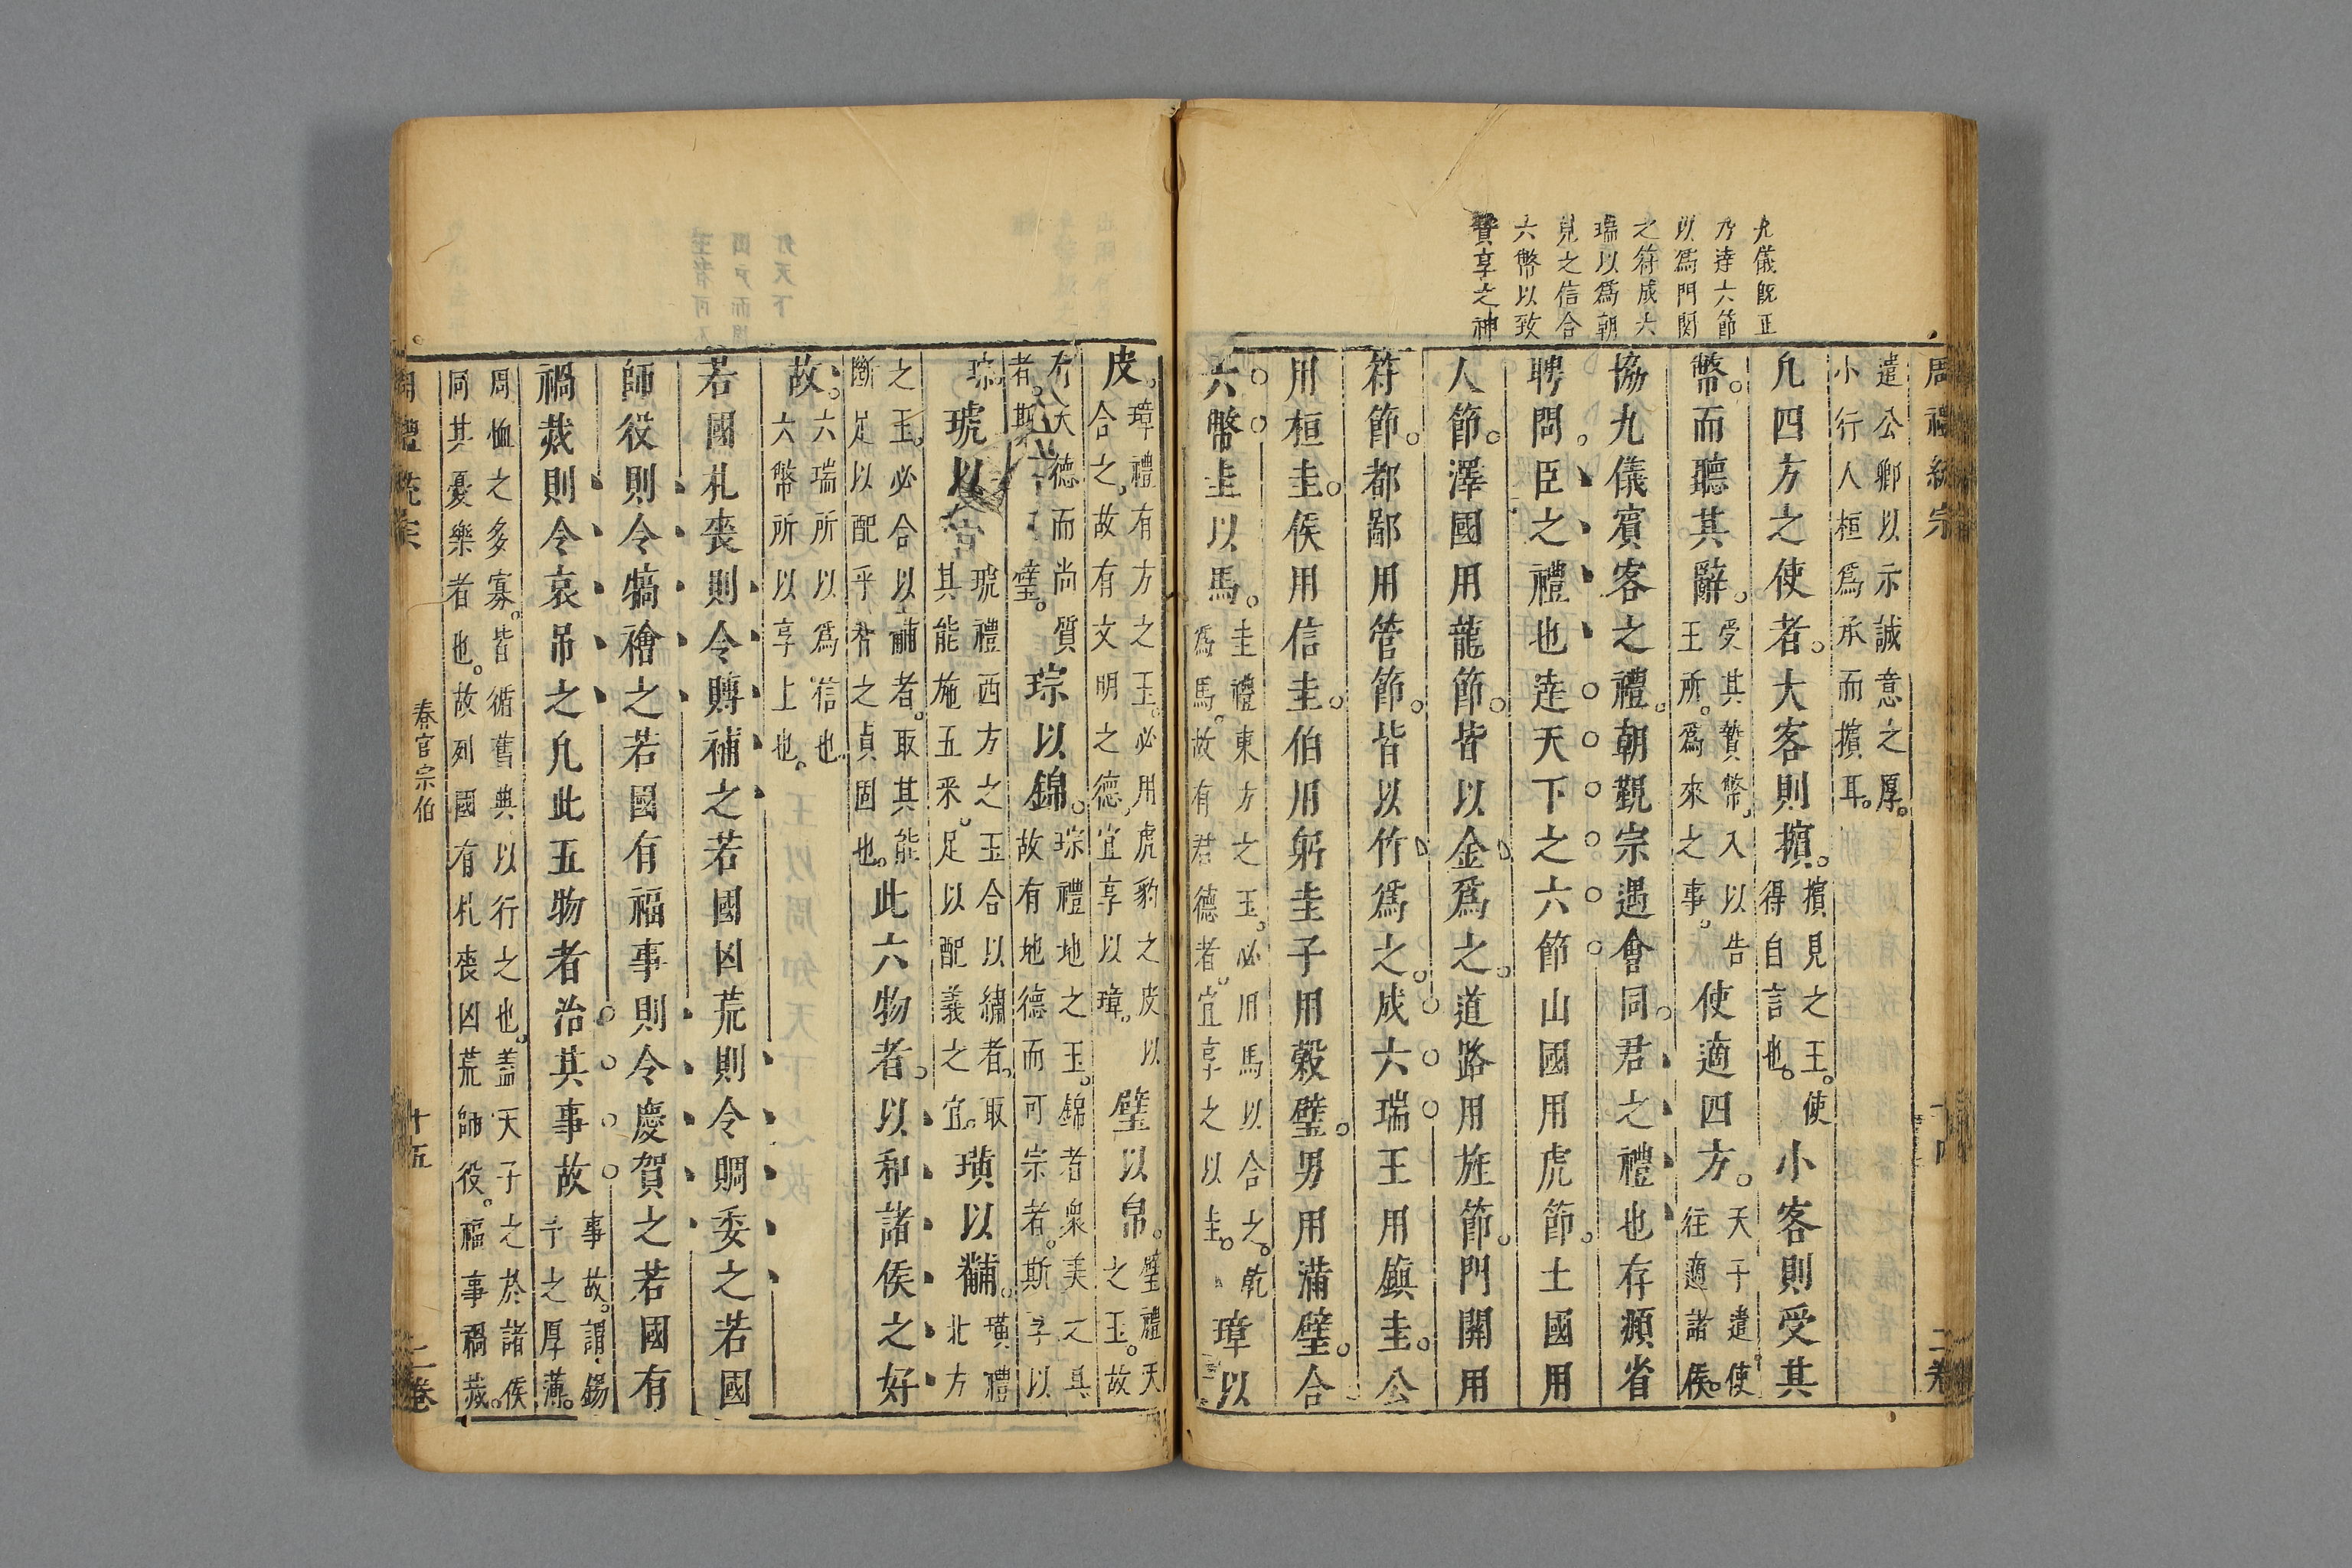 九儀既正
乃達六節
以爲門関
之符成六
瑞以爲朝
見之信合
六幣以致
贄享之神
周禮統宗
二卷
遣公卿以示誠意之厚
小行人桓爲承而擯耳
凢四方之使者大客則擯
擯見之王使
得自言也
小客則受其
幣而聽其辭
受其贄幣入以告
王所爲來之事
使適四方
天子遣使
往適諸侯
協九儀賓客之禮朝覲宗遇會同君之禮也存頫省
聘問臣之禮也達天下之六節山國用虎節土國用
人節澤國用龍節皆以金爲之道路用旌節門關用
符節都鄙用管節皆以竹爲之成六瑞王用鎮圭公
用桓圭侯用信圭伯用躬圭子用穀璧男用蒲璧合
六幣圭以馬
圭禮東方之玉必用馬以合之乾
爲馬故有君德者宜享之以圭
璋以
皮
璋禮有方之玉必用虎豹之皮以
合之故有文明之德宜享以璋
璧以帛
璧禮天
之玉故
有天德而尚質
者斯 璧
琮以錦
琮禮地之玉錦者衆美之具
故有地德而可宗者斯享以
琮
琥以
琥禮西方之玉合以繡者取
其能施五采足以配義之宜
璜以黼
璜禮
北方
之玉必合以黼者取其能
斷足以配乎智之貞固也
此六物者以和諸侯之好
故
六瑞所以爲信也
六幣所以享上也
若國札喪則令賻補之若國凶荒則令賙委之若國
師役則令犒禬之若國有福事則令慶賀之若國有
禍烖則令哀弔之凢此五物者治其事故
事故謂錫
予之厚薄
周恤之多寡皆循舊典以行之也蓋天子之於諸侯
同其憂樂者也故列國有札喪凶荒師役福事禍烖
周禮統宗
春官宗伯
十五
二卷